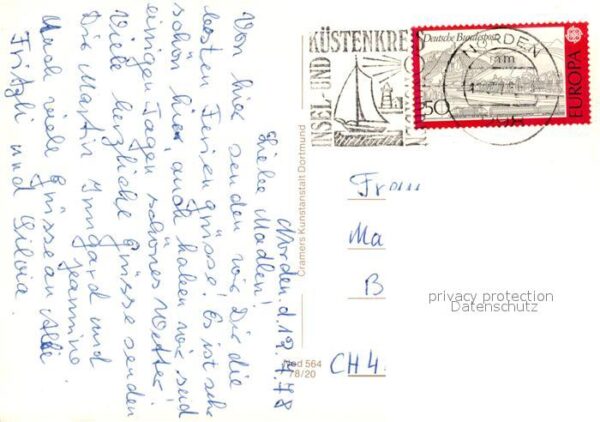 Norden, d. 19.7.78
Liebe Madlen!
Von hier senden wir Dir die
besten Feriengrüsse! Es ist sehr
schön hier, auch haben wir seid
einigen Tagen schönes Wetter!
Viele herzliche Grüsse senden
Dir Martin Irmgard und
Jeannine
Auch viele Grüsse an Alle
Fritzli und Silvia.
Cramers Kunstanstalt Dortmund
Mod 564
78/20
INSEL- UND
KÜSTENKREIS
NORDEN
Deutsche Bundespost
50
EUROPA
Frau
Ma
B
CH 4
privacy protection
Datenschutz